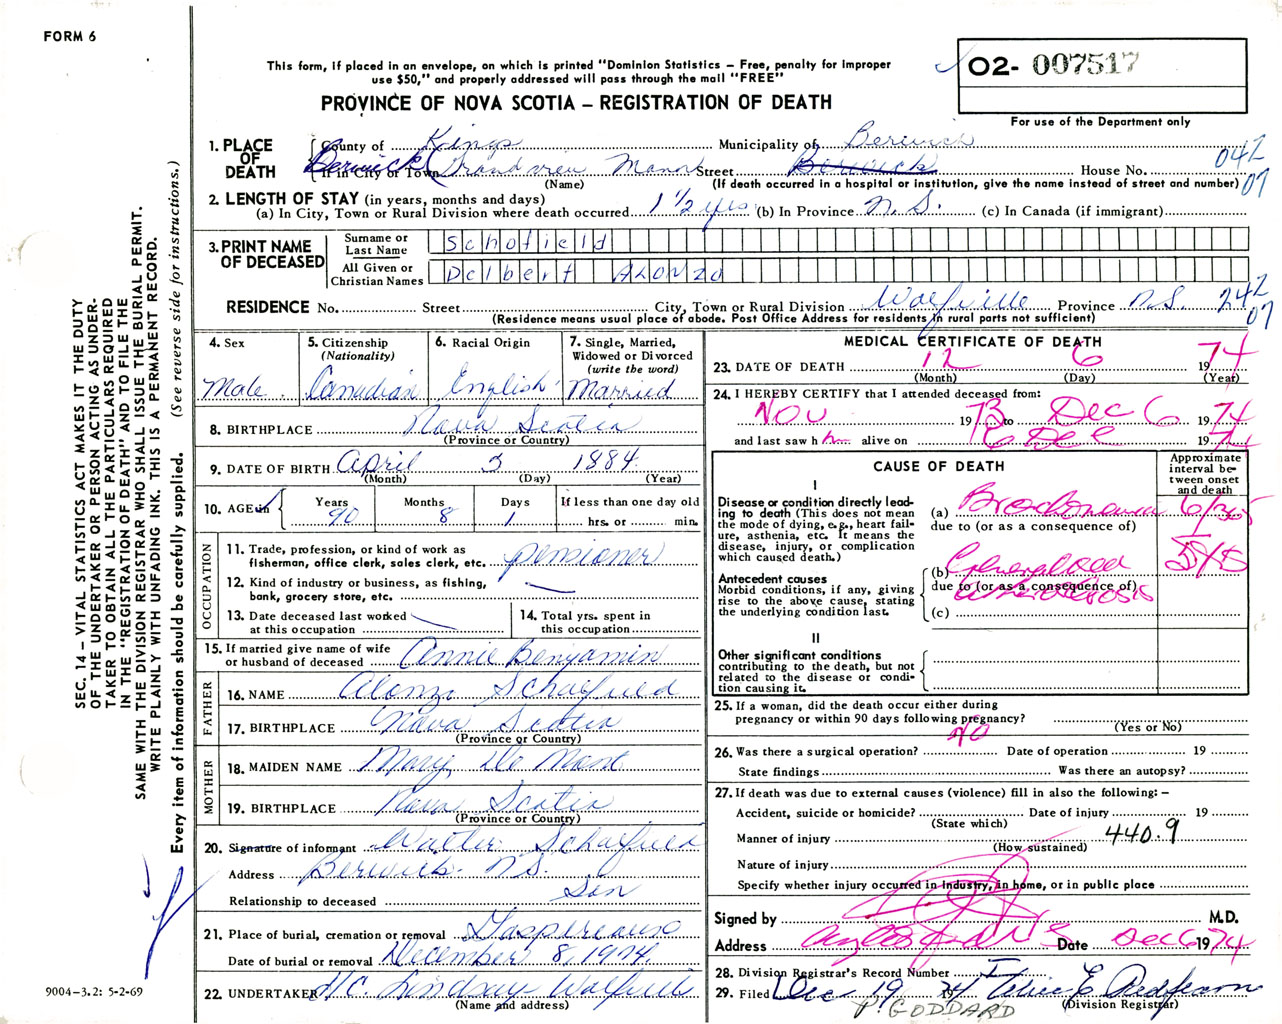 FORM 6
This form, if placed in an envelope, on which is printed "Dominion Statistics – Free, penalty for improper
use $50," and properly addressed will pass through the mail "FREE"
PROVINCE OF NOVA SCOTIA – REGISTRATION OF DEATH
02- 007517
For use of the Department only
1. PLACE OF DEATH
County of Kings Municipality of Berwick
Berwick (If in City or Town Grandview Manor Street Berwick House No.
(Name) (If death occurred in a hospital or institution, give the name instead of street and number)
042
07
2. LENGTH OF STAY (in years, months and days)
(a) In City, Town or Rural Division where death occurred 1 1/2 yrs (b) In Province N.S. (c) In Canada (if immigrant)
3. PRINT NAME OF DECEASED
Surname or Last Name Schofield
All Given or Christian Names Delbert Alonzo
RESIDENCE No. Street City, Town or Rural Division Wolfville Province N.S. 242
07
(Residence means usual place of abode. Post Office Address for residents in rural parts not sufficient)
4. Sex
Male
5. Citizenship
(Nationality)
Canadian
6. Racial Origin
English
7. Single, Married,
Widowed or Divorced
(write the word)
Married
8. BIRTHPLACE Nova Scotia
(Province or Country)
9. DATE OF BIRTH April 5 1884
(Month) (Day) (Year)
10. AGE in Years Months Days If less than one day old
90 8 1 hrs. or min.
OCCUPATION
11. Trade, profession, or kind of work as
fisherman, office clerk, sales clerk, etc. pensioner
12. Kind of industry or business, as fishing,
bank, grocery store, etc.
13. Date deceased last worked
at this occupation
14. Total yrs. spent in
this occupation
15. If married give name of wife
or husband of deceased Annie Benjamin
FATHER
16. NAME Alonzo Schofield
17. BIRTHPLACE Nova Scotia
(Province or Country)
MOTHER
18. MAIDEN NAME Mary
19. BIRTHPLACE Nova Scotia
(Province or Country)
20. Signature of informant Walter Schofield
Address Berwick. N.S.
Relationship to deceased Son
21. Place of burial, cremation or removal Gaspereaux
Date of burial or removal December 8, 1974.
22. UNDERTAKER H.C. Lindsay Wolfville
(Name and address)
MEDICAL CERTIFICATE OF DEATH
23. DATE OF DEATH 12 6 1974
(Month) (Day) (Year)
24. I HEREBY CERTIFY that I attended deceased from:
NOV 1973 to Dec 6 1974
and last saw him alive on 6 Dec 1974
CAUSE OF DEATH
Approximate
interval be-
tween onset
and death
I
Disease or condition directly lead-
ing to death (This does not
mean the mode of dying, e.g., heart fail-
ure, asthenia, etc. It means the
disease, injury, or complication
which caused death.)
(a)
due to (or as a consequence of)
Antecedent causes
Morbid conditions, if any, giving
rise to the above cause, stating
the underlying condition last.
(b) Generalized
due to (or as a consequence of)
(c)
II
Other significant conditions
contributing to the death, but not
related to the disease or condi-
tion causing it.
25. If a woman, did the death occur either during
pregnancy or within 90 days following pregnancy?
(Yes or No)
NO
26. Was there a surgical operation? Date of operation 19
State findings Was there an autopsy?
27. If death was due to external causes (violence) fill in also the following: –
Accident, suicide or homicide? Date of injury 19
(State which)
Manner of injury 440.9
(How sustained)
Nature of injury
Specify whether injury occurred in industry, in home, or in public place
Signed by M.D.
Address Aylesford N S Date Dec 6 1974
28. Division Registrar's Record Number
29. Filed Dec 19 1974 E Redfearn
(Division Registrar)
P. GODDARD
SEC. 14 – VITAL STATISTICS ACT MAKES IT THE DUTY
OF THE UNDERTAKER OR PERSON ACTING AS UNDER-
TAKER TO OBTAIN ALL THE PARTICULARS REQUIRED
IN THE "REGISTRATION OF DEATH" AND TO FILE THE
SAME WITH THE DIVISION REGISTRAR WHO SHALL ISSUE THE BURIAL PERMIT.
WRITE PLAINLY WITH UNFADING INK. THIS IS A PERMANENT RECORD.
Every item of information should be carefully supplied. (See reverse side for instructions.)
9004-3.2: 5-2-69